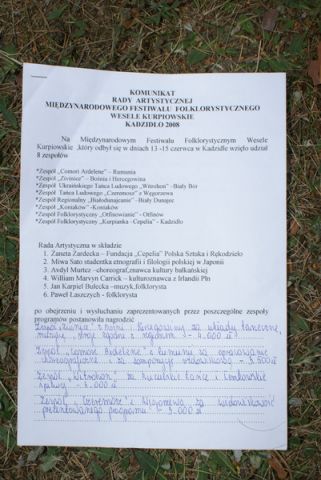 KOMUNIKAT
RADY ARTYSTYCZNEJ
MIĘDZYNARODOWEGO FESTIWALU FOLKLORYSTYCZNEGO
WESELE KURPIOWSKIE
KADZIDŁO 2008
Na Międzynarodowym Festiwalu Folklorystycznym Wesele
Kurpiowskie ,który odbył się w dniach 13 -15 czerwca w Kadzidle wzięło udział
8 zespołów
*Zespół „Comori Ardelene” – Rumunia
*Zespół „Zivinice” – Bośnia i Hercegowina
*Zespół Ukraińskiego Tańca Ludowego „Witrohon” –Biały Bór
*Zespół Tańca Ludowego „Czeremosz” z Węgorzewa
*Zespół Regionalny „Białodunajcanie” –Biały Dunajec
*Zespół „Koniaków” -Koniaków
*Zespół Folklorystyczny „Otfinowianie” – Otfinów
*Zespół Folklorystyczny „Kurpianka -Cepelia” - Kadzidło
Rada Artystyczna w składzie
1. Żaneta Zardecka – Fundacja „Cepelia” Polska Sztuka i Rękodzieło
2. Miwa Sato studentka etnografii i filologii polskiej w Japonii
3. Avdyl Murtez –choreograf,znawca kultury bałkańskiej
4. William Marvyn Carrick – kulturoznawca z Irlandii Płn
5. Jan Karpiel Bułecka –muzyk,folklorysta
6. Paweł Łaszczych - folklorysta
po obejrzeniu i wysłuchaniu zaprezentowanych przez poszczególne zespoły
programów postanowiła nagrodzić
Zespół z Bośni i Hercegowiny za układy taneczne,
muzykę, stroje zgodne z - 4.000 zł
Zespół "Comori Ardelene" z Rumunii za opracowanie
choreograficzne i za - 3.500 zł
Zespół "Witrohon" za tańce i
- 3.000 zł
Zespół "Czeremosz" z Węgorzewa za widowiskowość
prezentowanego programu - 3.000 zł